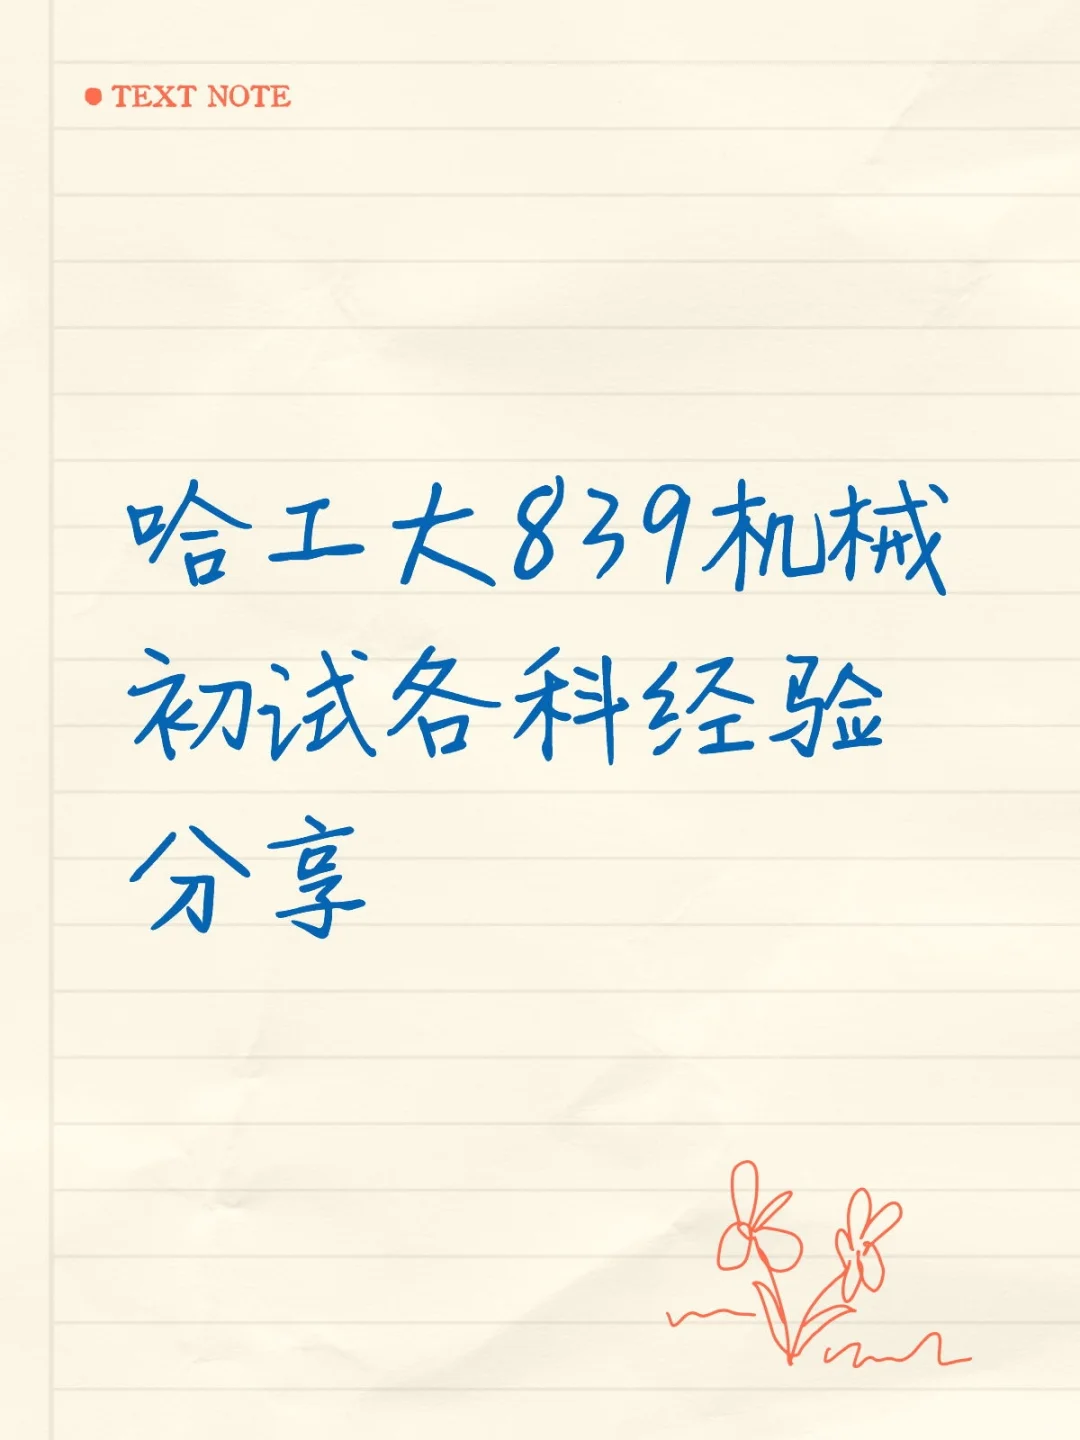 TEXT NOTE
哈工大839机械
初试各科经验
分享